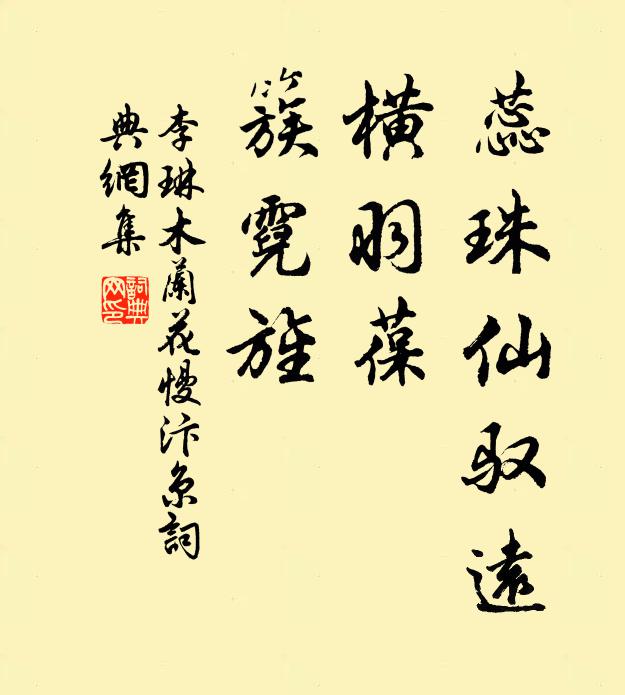 蕊珠仙驭遠
橫羽葆
簇霓旌
李琳木蘭花慢汴京詞
典網集
詞典
网印